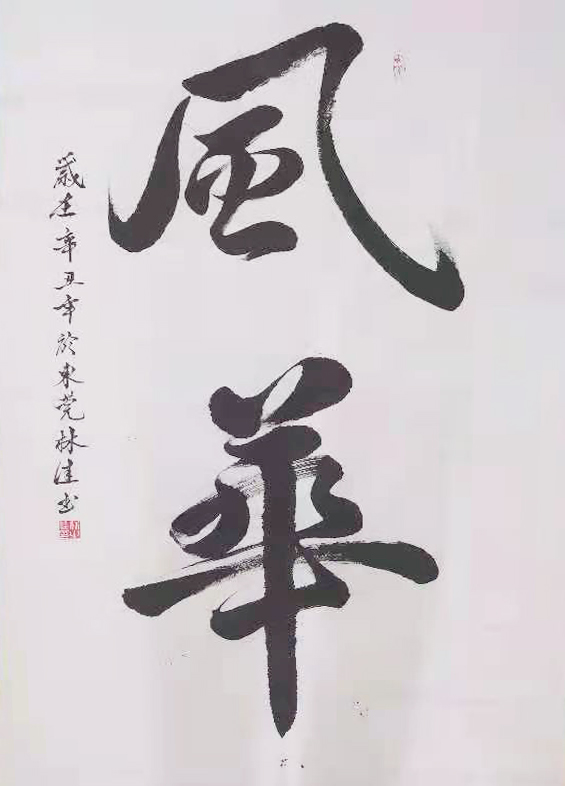 風華
歲在辛丑年於東莞林佳书